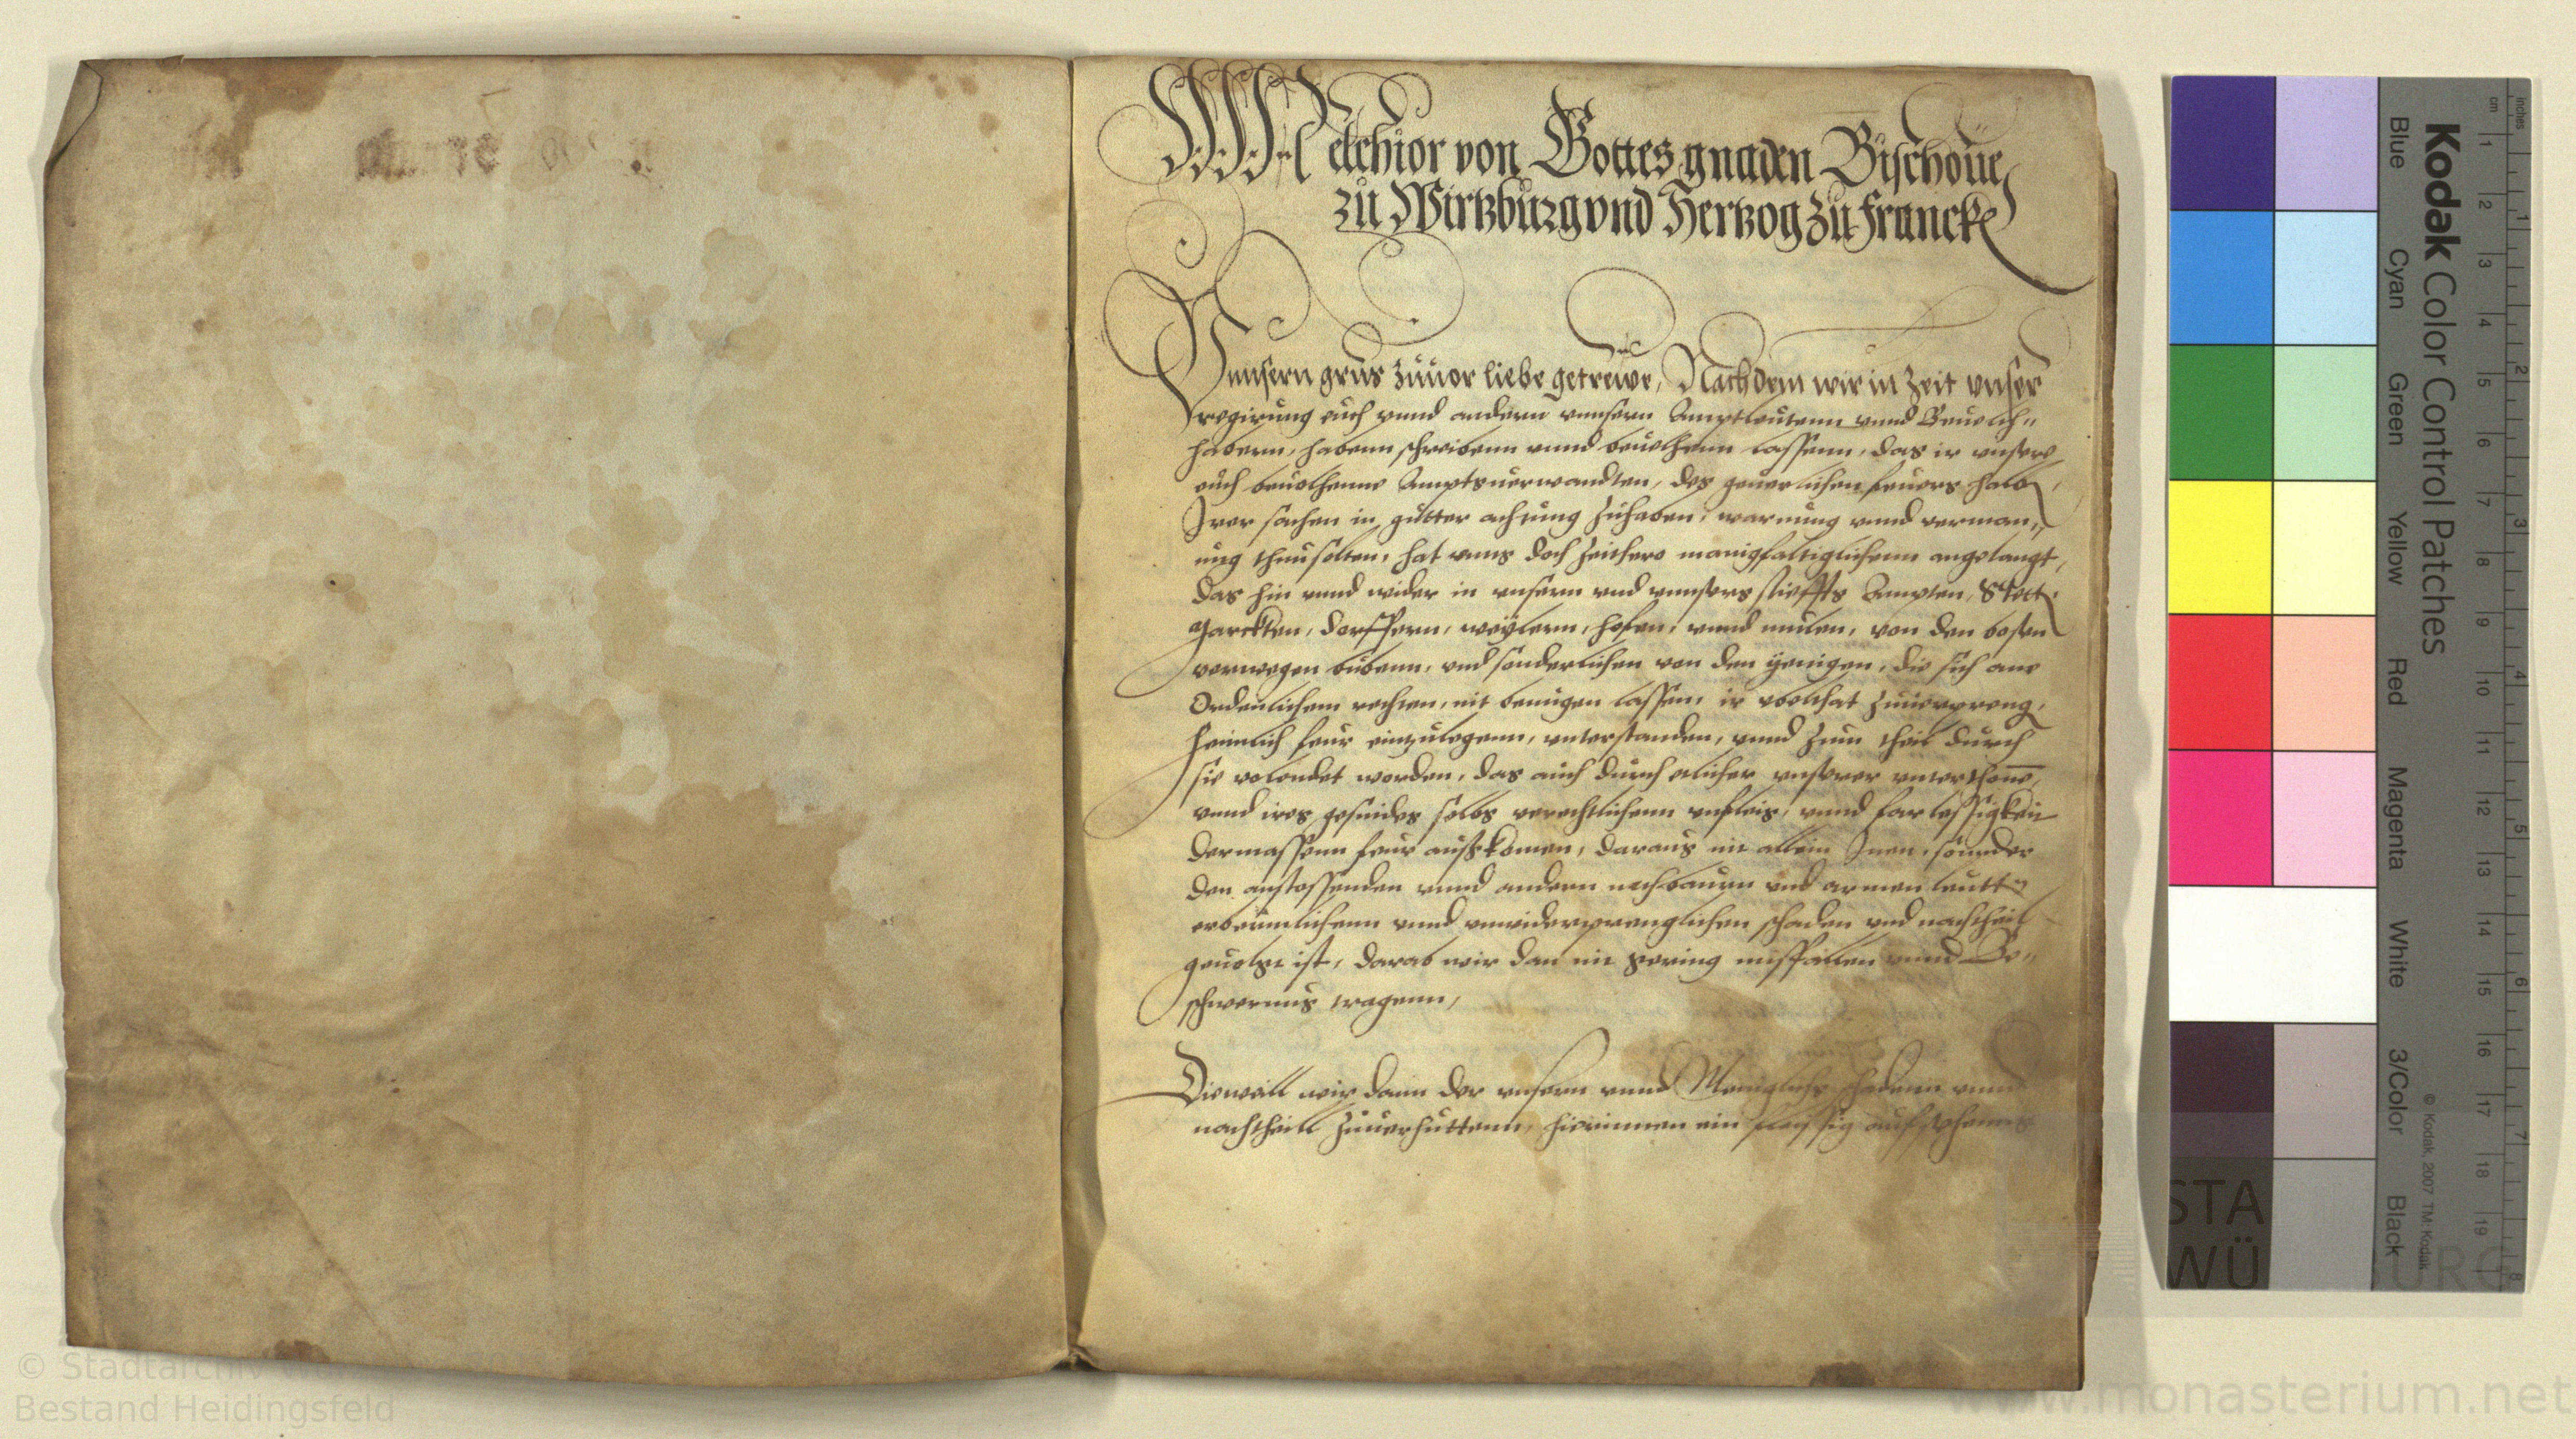 Melchior von Gottes gnaden Bischoue
zu Wirtzburg vnd Hertzog zu Francke
Vnnsern grus zuuor liebe getrewe, Nachdem wir in Zeit vnser
regirung euch vnnd andern vnnsern Amptleutenn vnnd Beuelch„
habern, habenn schreibenn vnnd beuelhenn lassenn, das ir vnsere
euch beuolhenne Amptsuerwandten, des geuerlichen feuers halb,
Irer sachen in gutter achtung zuhaben, warnung vnnd verman„
ung thun solten, hat vnns doch zeithero manigfaltiglichenn angelangt,
das hin vnnd wider in vnsern vnd vnnsers Stieffts Ampten, Stett
Marckten, dorffern, weylern, hofen, vnnd mulen, von den bosen
verwegen bubenn, vnd sonderlichen von den yenigen, die sich ane
Ordenlichem rechten, nit benugen lassen, ir
heimlich feur einzulegenn, vnterstanden, vnnd zum theil durch
sie volendet worden, das auch durch etlicher vnserer vnterthane,
vnnd ires gesindes selbs verechtlichenn vnfleis, vnnd farlessigkeit
dermassenn feur ausskomen, daraus nit allein Inen, sonnder
den anstossenden vnnd andern nachbaurn vnd armen leutt
erbermlichenn vnnd vnwiderprenglichen schaden vnd nachtheil
geuolgt ist, darab wir dan nit gering missfallen vnnd Be„
schwernus tragenn,
Dieweill wir dann der vnsern vnnd Meniglichs schadenn vnnd
nachtheill zuuerhuttenn, hierinnen ein fleissig auffsehenns
Kodak Color Control Patches
Blue Cyan Green Yellow Red Magenta White 3/Color Black
© Kodak, 2007 TM: Kodak
inches 1 2 3 4 5 6 7 8
cm 1 2 3 4 5 6 7 8 9 10 11 12 13 14 15 16 17 18 19
STA
WÜ URG
© Stadtarchiv Wü
Bestand Heidingsfeld
www.monasterium.net